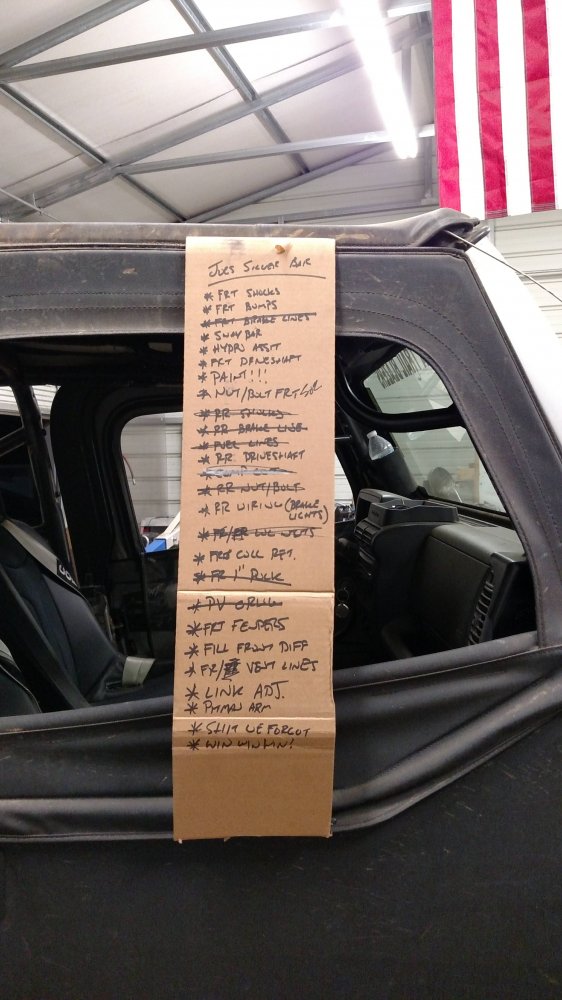 JOES SILVER BAR
* FRT SHOCKS
* FRT BUMPS
* FRT BRAKE LINES
* SWAY BAR
* HYDRO ASST
* FRT DRIVESHAFT
* PAINT!!!
* NUT/BOLT FRT
* RR SHOCKS
* RR BRAKE LINE
* FUEL LINES
* RR DRIVESHAFT
* RR NUT/BOLT
* RR WIRING (BRAKE
LIGHTS)
* FR/RR LUG NUTS
* COLL RPT.
* FR 1" PUCK
* PV
* FRT FENDERS
* FILL FRONT DIFF
* FR/ VENT LINES
* LINK ADJ.
* PMAN ARM
* SHIT WE FORGOT
* WIN WIN WIN!